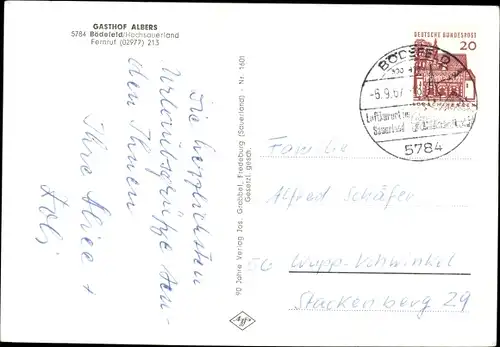 GASTHOF ALBERS
5784 Bödefeld/Hochsauerland
Fernruf (02977) 213
Die herzlichsten
Urlaubsgrüße sen-
den Ihnen
Ihre Alice +
90 Jahre Verlag Jos. Grobbel, Fredeburg (Sauerland) - Nr. 1601
Gesetzl. gesch.
Agfa
DEUTSCHE BUNDESPOST
20
BÖDEFELD
-6.9.67
Luftkurort
Sauerland
5784
Familie
Alfred Schäfer
56 Wupp-Vohwinkel
Stackenberg 29